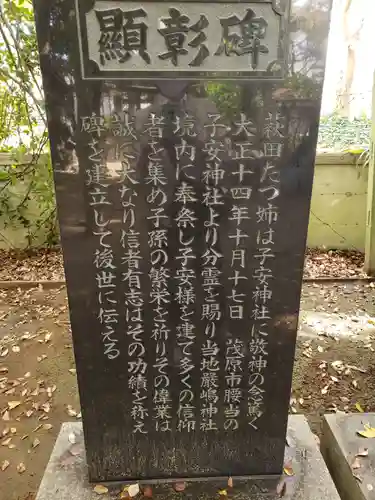 顕彰碑
萩田たつ姉は子安神社に敬神の念篤く
大正十四年十月十七日　茂原市腰当の
子安神社より分霊を賜り当地嚴嶋神社
境内に奉祭し子安様を建て多くの信仰
者を集め子孫の繁栄を祈りその偉業は
誠に大なり信者有志はその功績を称え
碑を建立して後世に伝える